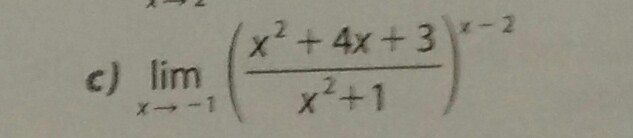 c) lim x→-1 ((x² + 4x + 3)/(x² + 1))^(x - 2)